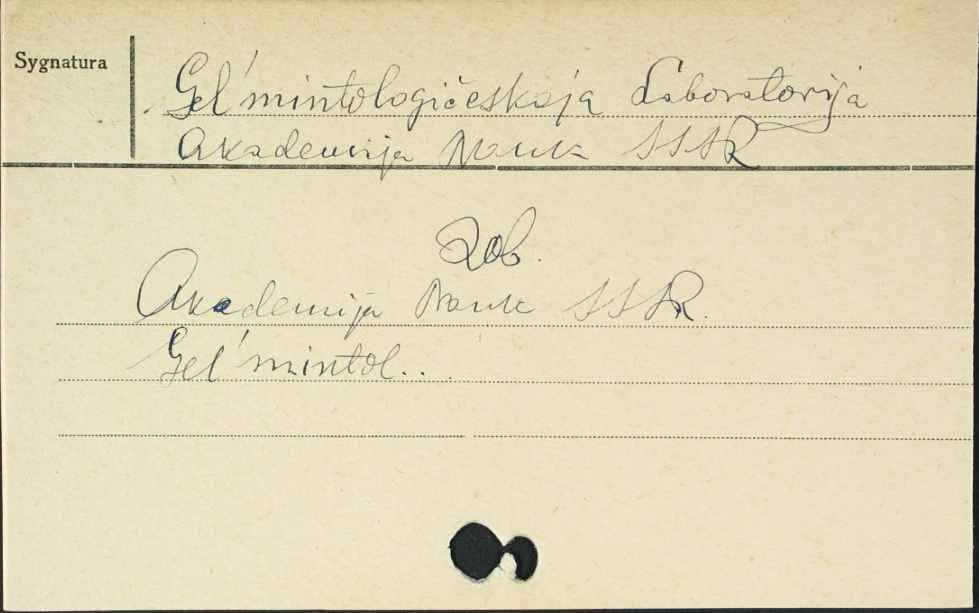 Sygnatura
Gel'mintologičeskaja Laboratorija
Akademija Nauk SSSR
Zob.
Akademija Nauk SSSR.
Gel'mintol..